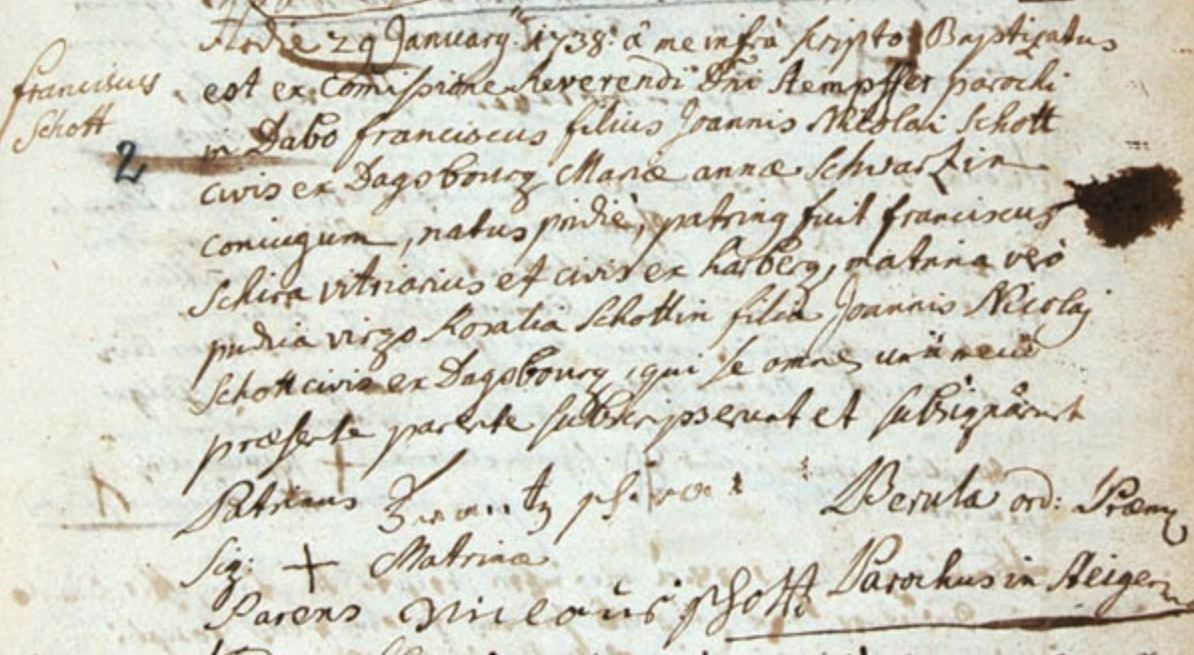 franciscus
Schott
2
Hodie 29 January 1738 â me infrà scripto Baptizatus
est ex Comissione Reverendi Dni Kempffer parochi
in Dabo franciscus filius Joannis Nicolai Schott
civis ex Dagsbourg Mariæ annæ Schwartzin
coniugum, natus pridie, patrinus fuit franciscus
Schira vitriarius et civis ex harberg, matrina verò
pudica virgo Rosalia Schottin filia Joannis Nicolaj
Schott civis ex Dagsbourg, qui se omnes
præsente parente subscripserunt et subsignârunt
Patrinus
Berula ord: Præm
Sig: + Matrinæ
Parochus in
Parens Nicolaus schott